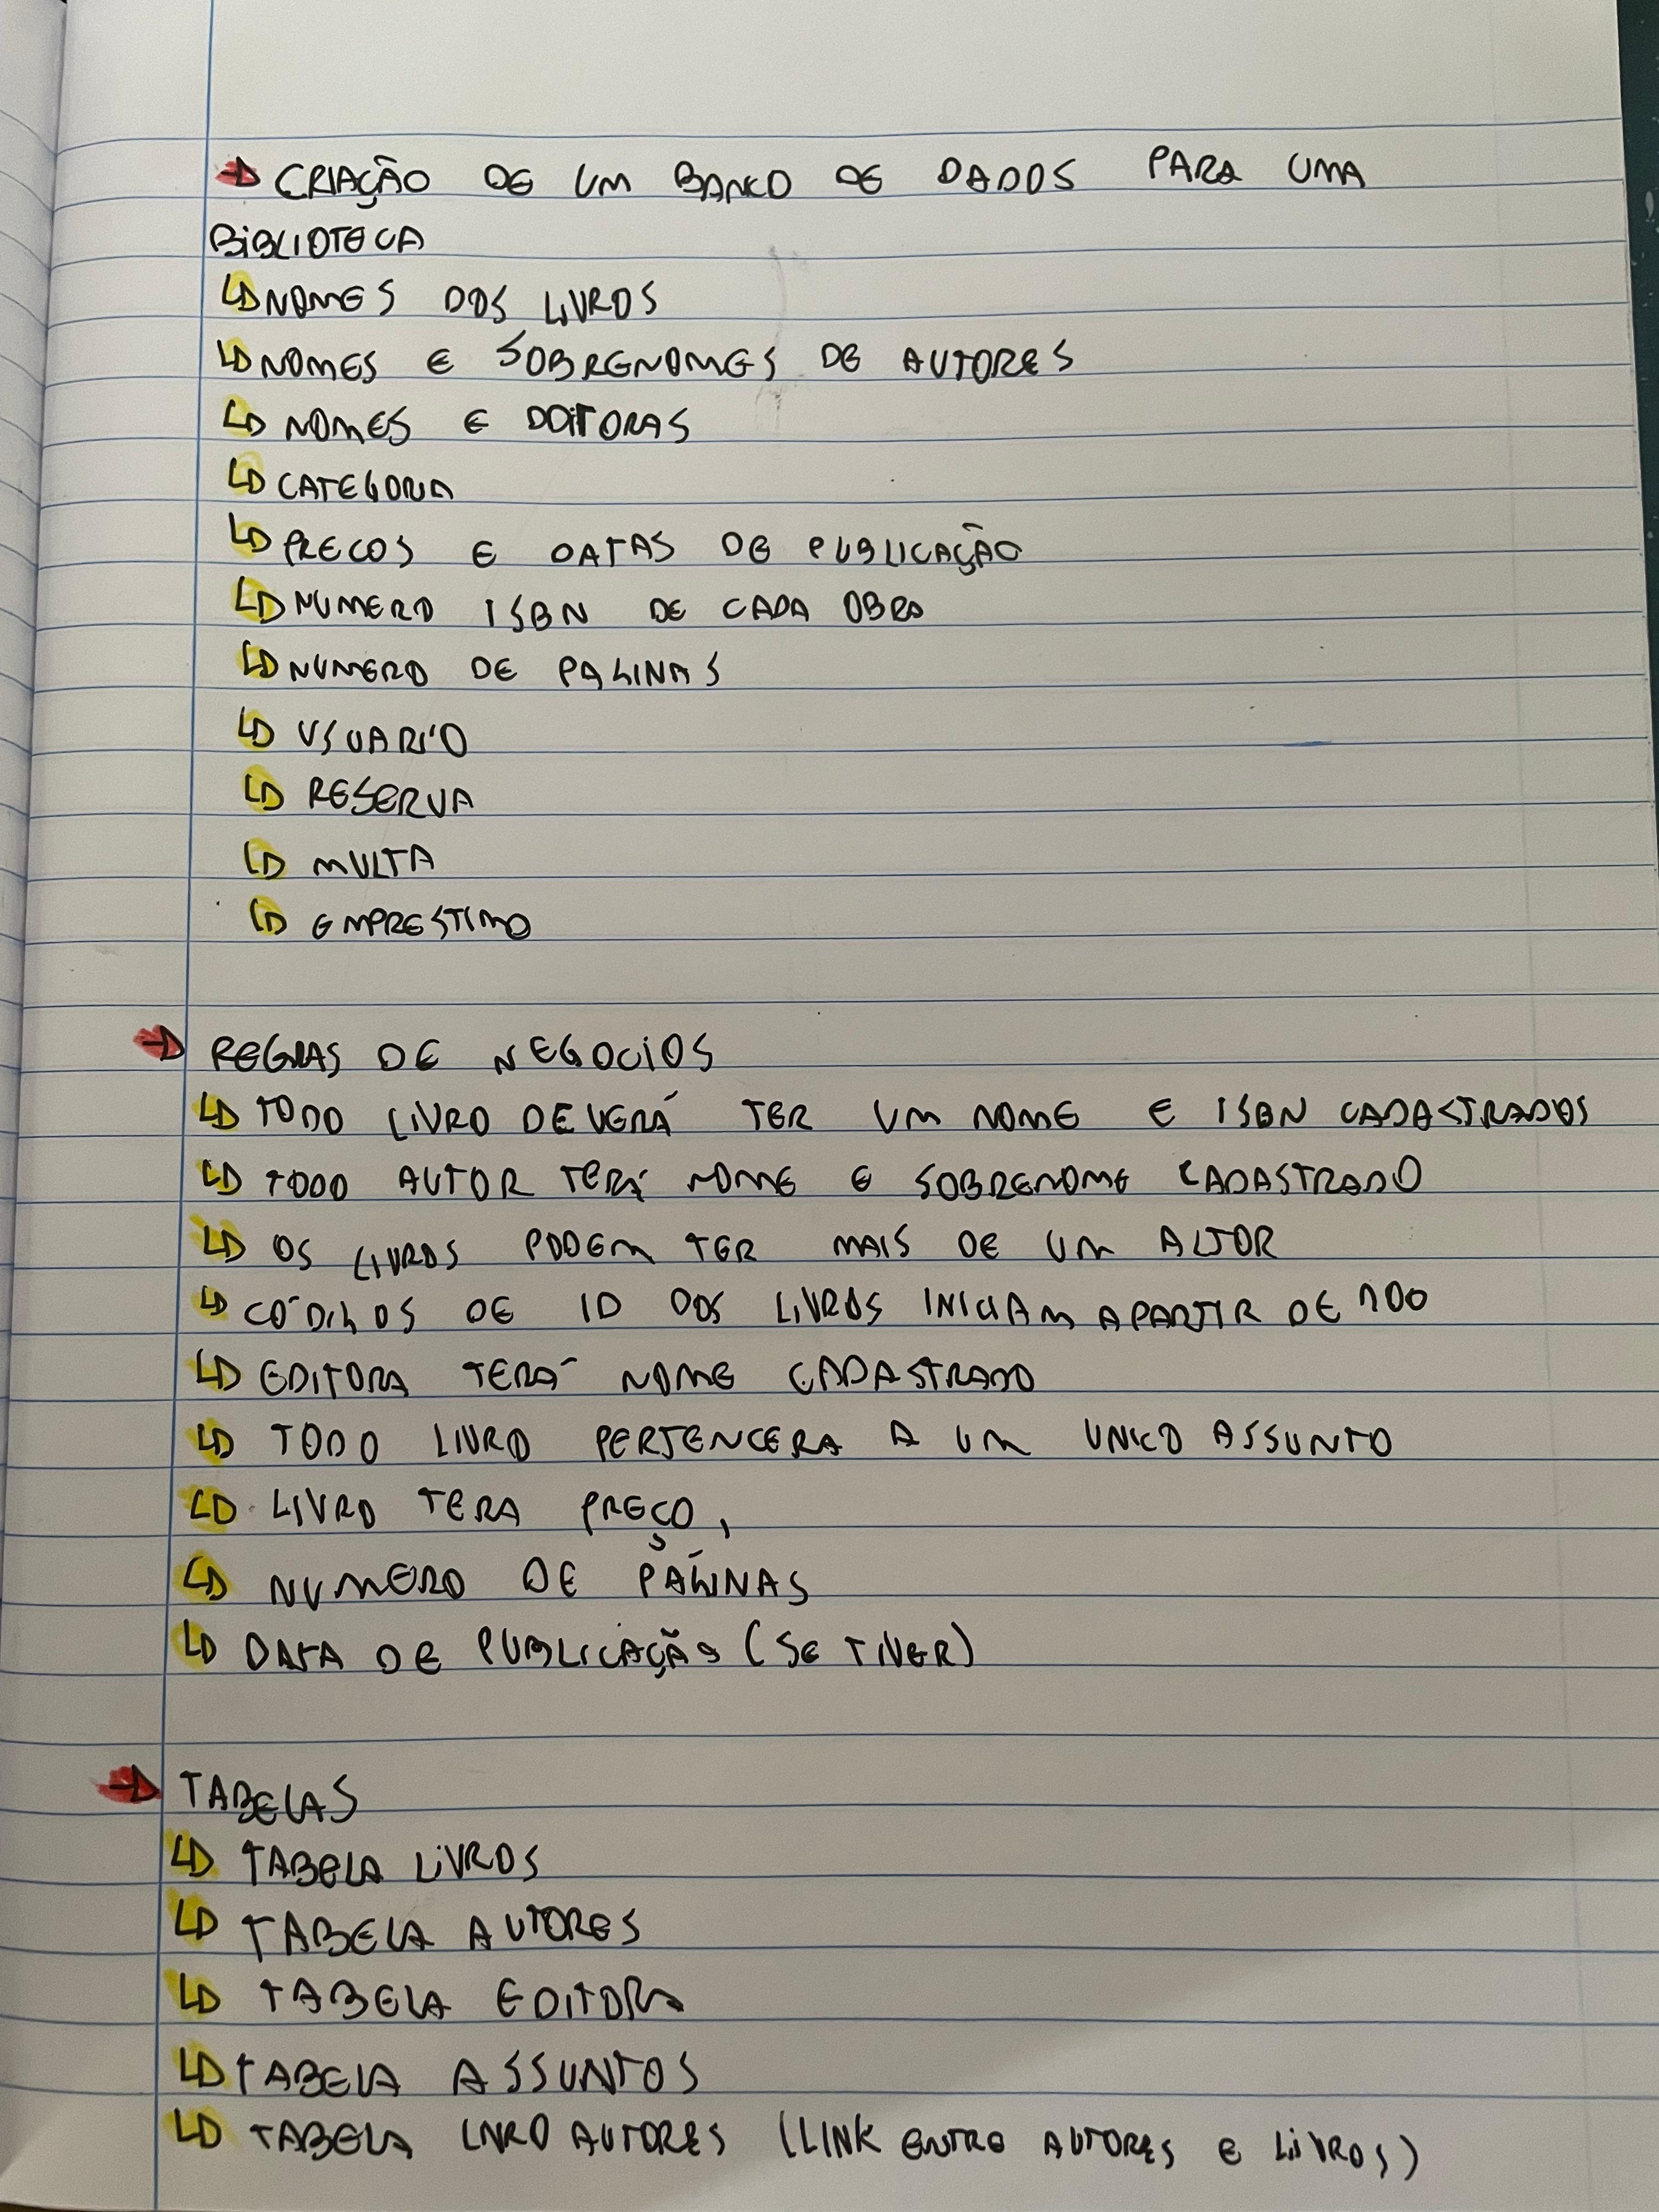 → CRIAÇÃO DE UM BANCO DE DADOS PARA UMA
BIBLIOTECA
↳ NOMES DOS LIVROS
↳ NOMES E SOBRENOMES DE AUTORES
↳ NOMES E DDITORAS
↳ CATEGORIA
↳ PRECOS E DATAS DE PUBLICAÇÃO
↳ NUMERO ISBN DE CADA OBRA
↳ NUMERO DE PAGINAS
↳ USUARIO
↳ RESERVA
↳ MULTA
↳ EMPRESTIMO
→ REGRAS DE NEGOCIOS
↳ TODO LIVRO DEVERÁ TER UM NOME E ISBN CADASTRADOS
↳ TODO AUTOR TERÁ NOME E SOBRENOME CADASTRADO
↳ OS LIVROS PODEM TER MAIS DE UM AUTOR
↳ CÓDIGOS DE ID DOS LIVROS INICIAM APARTIR DE 100
↳ EDITORA TERÁ NOME CADASTRADO
↳ TODO LIVRO PERTENCERA A UM UNICO ASSUNTO
↳ LIVRO TERA PREÇO,
↳ NUMERO DE PÁGINAS
↳ DATA DE PUBLICAÇÃO (SE TIVER)
→ TABELAS
↳ TABELA LIVROS
↳ TABELA AUTORES
↳ TABELA EDITORA
↳ TABELA ASSUNTOS
↳ TABELA LIVRO AUTORES (LINK ENTRE AUTORES E LIVROS)